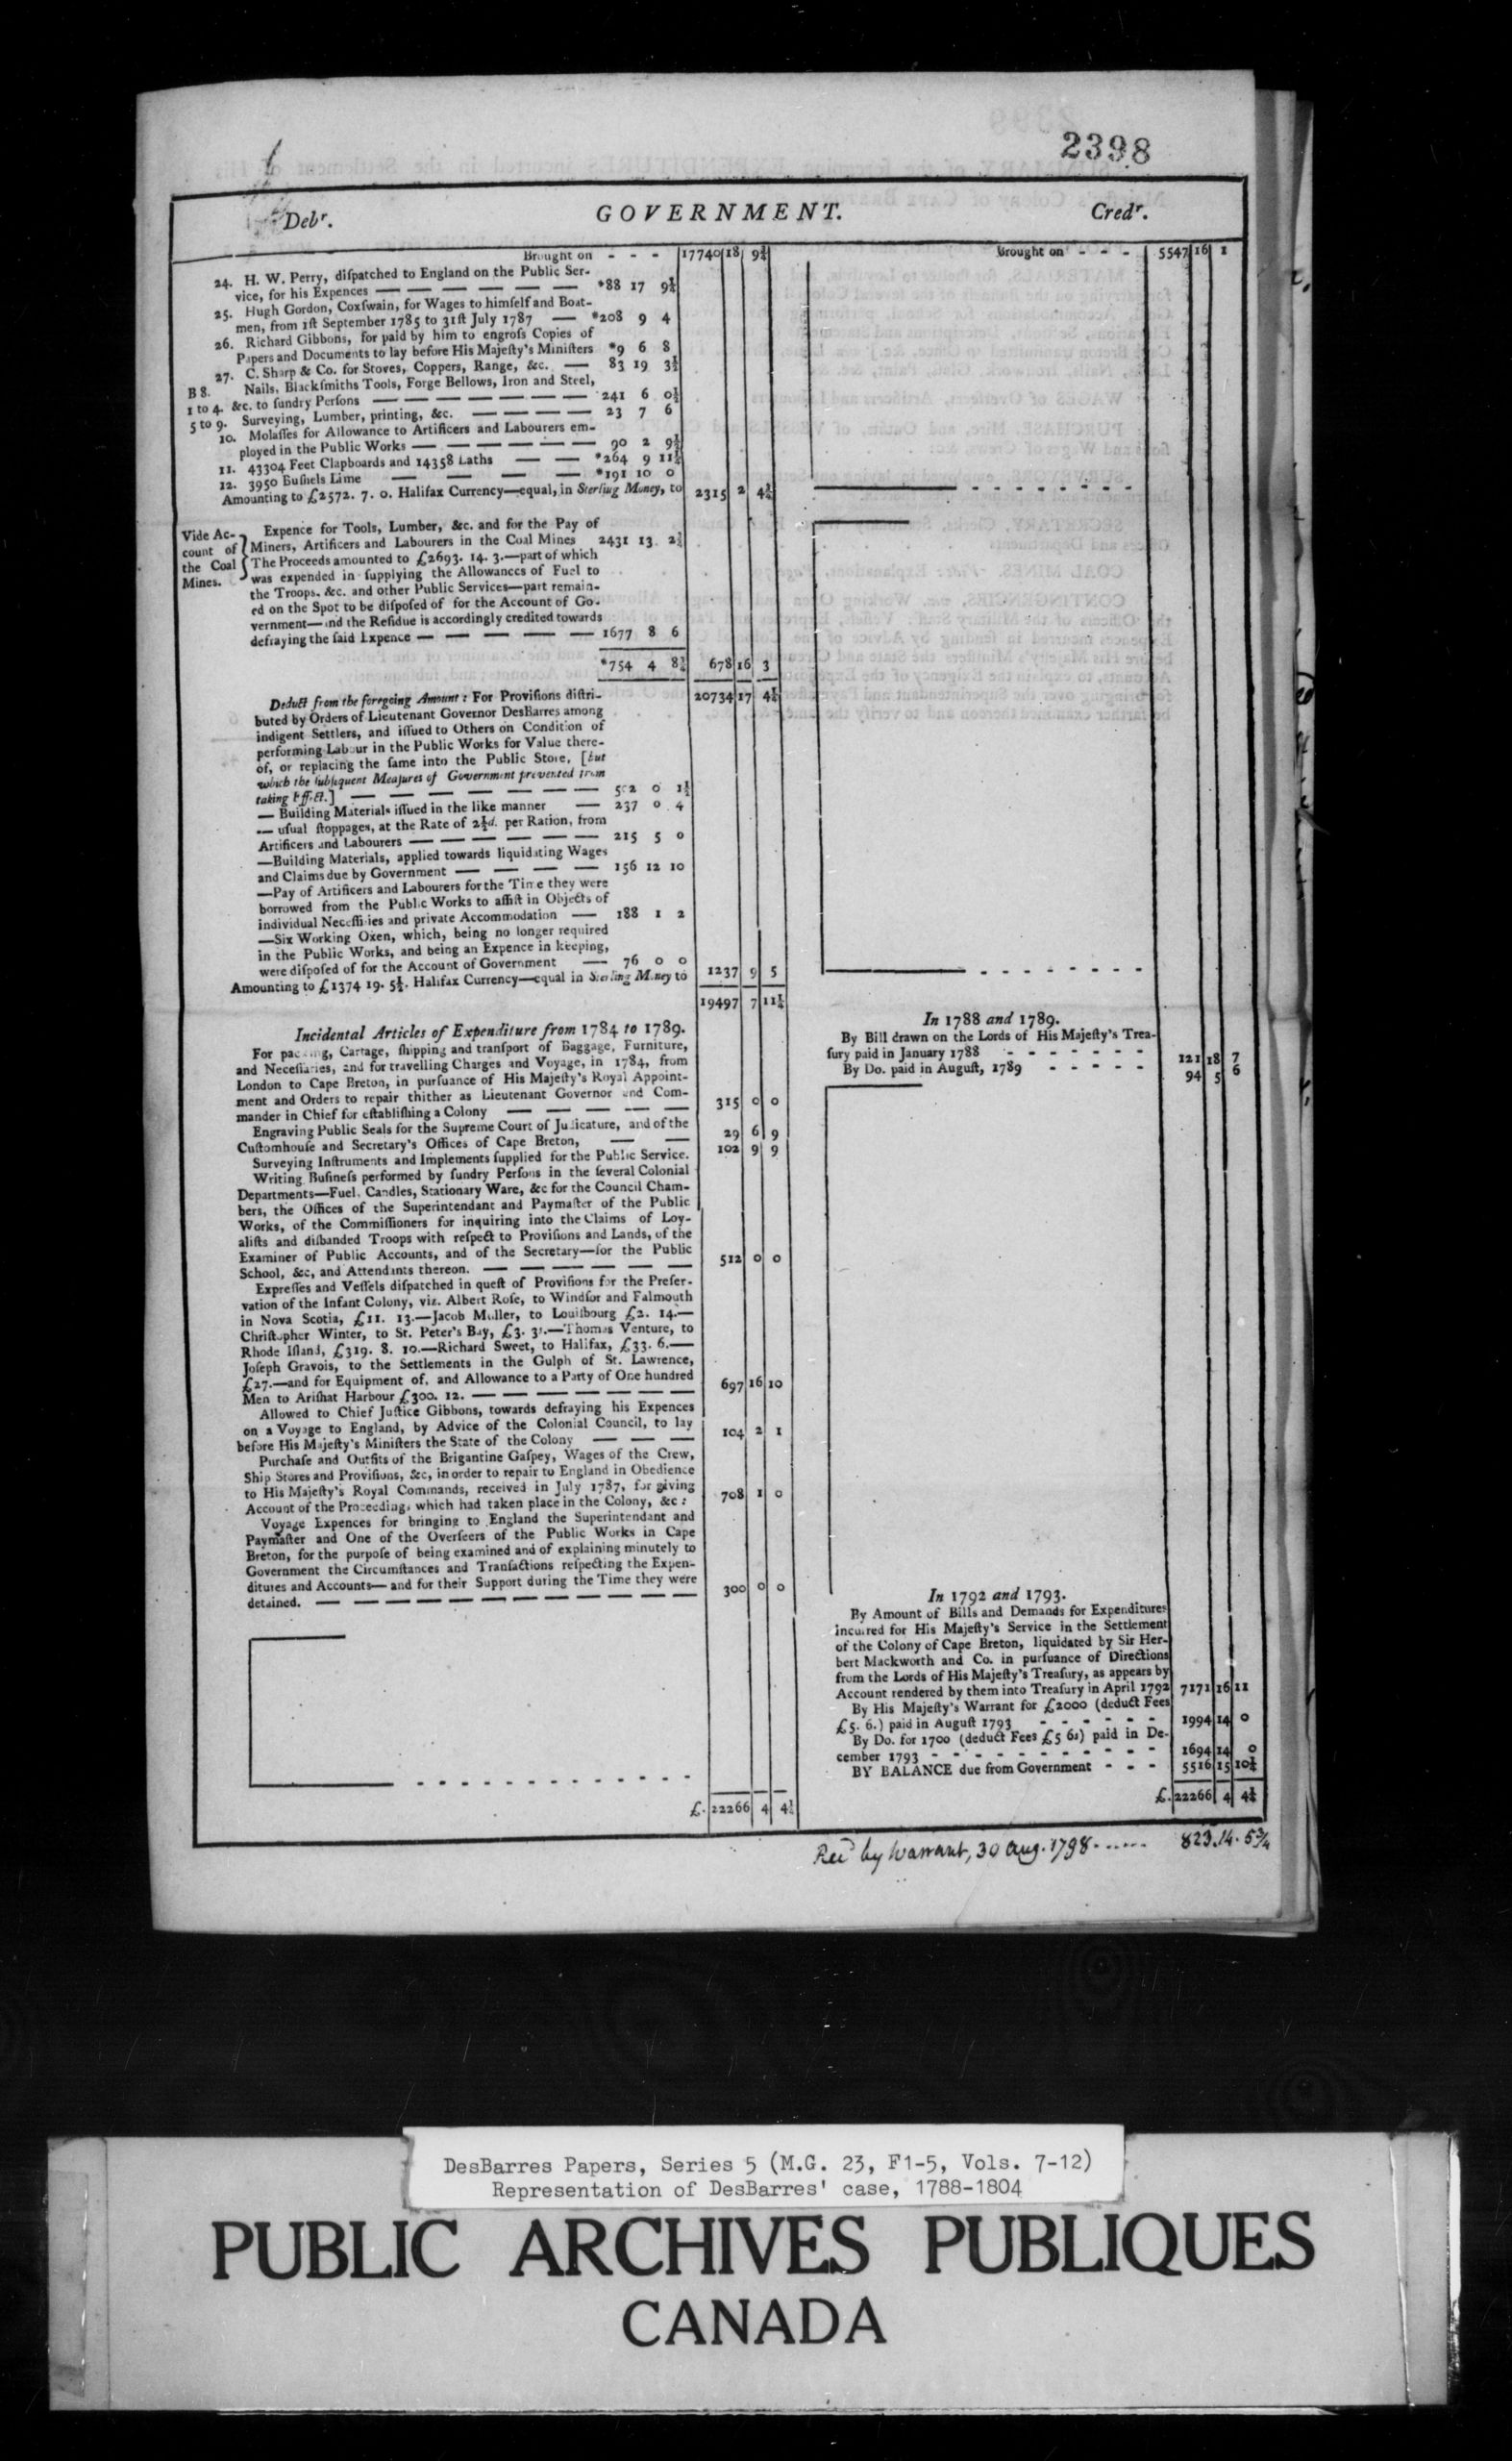 2398
Debr. GOVERNMENT. Credr.
Brought on - - - 17740 18 9¾
24. H. W. Perry, diſpatched to England on the Public Ser-
vice, for his Expences — *88 17 9¾
25. Hugh Gordon, Coxſwain, for Wages to himſelf and Boat-
men, from 1ſt September 1785 to 31ſt July 1787 — *208 9 4
26. Richard Gibbons, for paid by him to engroſs Copies of
Papers and Documents to lay before His Majeſty's Miniſters *9 6 8
27. C. Sharp & Co. for Stoves, Coppers, Range, &c. — 83 19 3½
B 8. Nails, Blackſmiths Tools, Forge Bellows, Iron and Steel,
1 to 4. &c. to ſundry Perſons — 241 6 0½
5 to 9. Surveying, Lumber, printing, &c. — 23 7 6
10. Molaſſes for Allowance to Artificers and Labourers em-
ployed in the Public Works — 90 2 9½
11. 43304 Feet Clapboards and 14358 Laths — *264 9 11½
12. 3950 Buſhels Lime — *191 10 0
Amounting to £2572. 7. 0. Halifax Currency—equal, in Sterling Money, to 2315 2 4¾
Vide Ac-
count of
the Coal
Mines.
Expence for Tools, Lumber, &c. and for the Pay of
Miners, Artificers and Labourers in the Coal Mines 2431 13 2¾
The Proceeds amounted to £2693. 14. 3.—part of which
was expended in ſupplying the Allowances of Fuel to
the Troops, &c. and other Public Services—part remain-
ed on the Spot to be diſpoſed of for the Account of Go-
vernment—and the Reſidue is accordingly credited towards
defraying the ſaid Expence — 1677 8 6
*754 4 8¾ 678 16 3
20734 17 4¼
Deduct from the foregoing Amount: For Proviſions diſtri-
buted by Orders of Lieutenant Governor DesBarres among
indigent Settlers, and iſſued to Others on Condition of
performing Labour in the Public Works for Value there-
of, or replacing the ſame into the Public Store, [but
which the ſubſequent Meaſures of Government prevented from
taking Effect.] — 502 0 1½
— Building Materials iſſued in the like manner — 237 0 4
— uſual ſtoppages, at the Rate of 2½d. per Ration, from
Artificers and Labourers — 215 5 0
—Building Materials, applied towards liquidating Wages
and Claims due by Government — 156 12 10
—Pay of Artificers and Labourers for the Time they were
borrowed from the Public Works to aſſiſt in Objects of
individual Neceſſities and private Accommodation — 188 1 2
—Six Working Oxen, which, being no longer required
in the Public Works, and being an Expence in keeping,
were diſpoſed of for the Account of Government — 76 0 0
Amounting to £1374 19. 5½. Halifax Currency—equal in Sterling Money to 1237 9 5
19497 7 11¼
Incidental Articles of Expenditure from 1784 to 1789.
For packing, Cartage, ſhipping and tranſport of Baggage, Furniture,
and Neceſſaries, and for travelling Charges and Voyage, in 1784, from
London to Cape Breton, in purſuance of His Majeſty's Royal Appoint-
ment and Orders to repair thither as Lieutenant Governor and Com-
mander in Chief for eſtabliſhing a Colony — 315 0 0
Engraving Public Seals for the Supreme Court of Judicature, and of the
Cuſtomhouſe and Secretary's Offices of Cape Breton, — 29 6 9
Surveying Inſtruments and Implements ſupplied for the Public Service. 102 9 9
Writing Buſineſs performed by ſundry Perſons in the ſeveral Colonial
Departments—Fuel, Candles, Stationary Ware, &c for the Council Cham-
bers, the Offices of the Superintendant and Paymaſter of the Public
Works, of the Commiſſioners for inquiring into the Claims of Loy-
aliſts and diſbanded Troops with reſpect to Proviſions and Lands, of the
Examiner of Public Accounts, and of the Secretary—for the Public
School, &c, and Attendants thereon. — 512 0 0
Expreſſes and Veſſels diſpatched in queſt of Proviſions for the Preſer-
vation of the Infant Colony, viz. Albert Roſe, to Windſor and Falmouth
in Nova Scotia, £11. 13.—Jacob Muller, to Louiſbourg £2. 14.—
Chriſtopher Winter, to St. Peter's Bay, £3. 3s.—Thomas Venture, to
Rhode Iſland, £319. 8. 10.—Richard Sweet, to Halifax, £33. 6.—
Joſeph Gravois, to the Settlements in the Gulph of St. Lawrence,
£27.—and for Equipment of, and Allowance to a Party of One hundred
Men to Ariſhat Harbour £300. 12. — 697 16 10
Allowed to Chief Juſtice Gibbons, towards defraying his Expences
on a Voyage to England, by Advice of the Colonial Council, to lay
before His Majeſty's Miniſters the State of the Colony — 104 2 1
Purchaſe and Outfits of the Brigantine Gaſpey, Wages of the Crew,
Ship Stores and Proviſions, &c, in order to repair to England in Obedience
to His Majeſty's Royal Commands, received in July 1787, for giving
Account of the Proceedings which had taken place in the Colony, &c: 708 1 0
Voyage Expences for bringing to England the Superintendant and
Paymaſter and One of the Overſeers of the Public Works in Cape
Breton, for the purpoſe of being examined and of explaining minutely to
Government the Circumſtances and Tranſactions reſpecting the Expen-
ditures and Accounts—and for their Support during the Time they were
detained. — 300 0 0
£. 22266 4 4¼
Brought on - - - 5547 16 1
In 1788 and 1789.
By Bill drawn on the Lords of His Majeſty's Trea-
ſury paid in January 1788 - - - 121 18 7
By Do. paid in Auguſt, 1789 - - - 94 5 6
In 1792 and 1793.
By Amount of Bills and Demands for Expenditures
incurred for His Majeſty's Service in the Settlement
of the Colony of Cape Breton, liquidated by Sir Her-
bert Mackworth and Co. in purſuance of Directions
from the Lords of His Majeſty's Treaſury, as appears by
Account rendered by them into Treaſury in April 1792 7171 16 11
By His Majeſty's Warrant for £2000 (deduct Fees
£5. 6.) paid in Auguſt 1793 - - - 1994 14 0
By Do. for 1700 (deduct Fees £5 6s) paid in De-
cember 1793 - - - 1694 14 0
BY BALANCE due from Government - - - 5516 15 10¼
£. 22266 4 4¼
Recd by Warrant, 30 Aug. 1798...... 823.14.5¾
DesBarres Papers, Series 5 (M.G. 23, F1-5, Vols. 7-12)
Representation of DesBarres' case, 1788-1804
PUBLIC ARCHIVES PUBLIQUES
CANADA